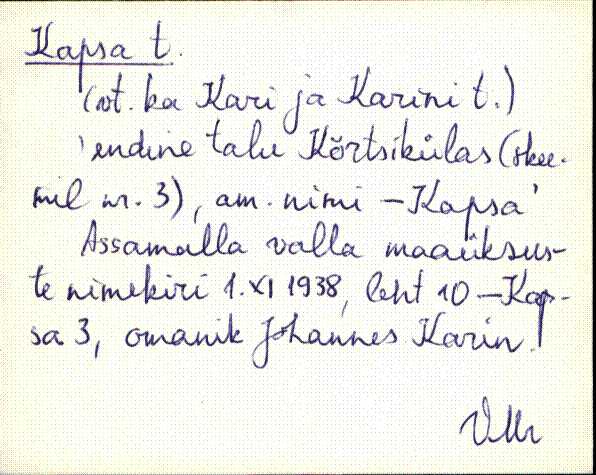 Kapsa t.
(vt. ka Kari ja Karini t.)
'endine talu Kõrtsikülas (skee-
mil nr. 3), am. nimi - Kapsa'
Assamalla valla maaüksus-
te nimekiri 1.XI 1938, leht 10 - Kap-
sa 3, omanik Johannes Karin.